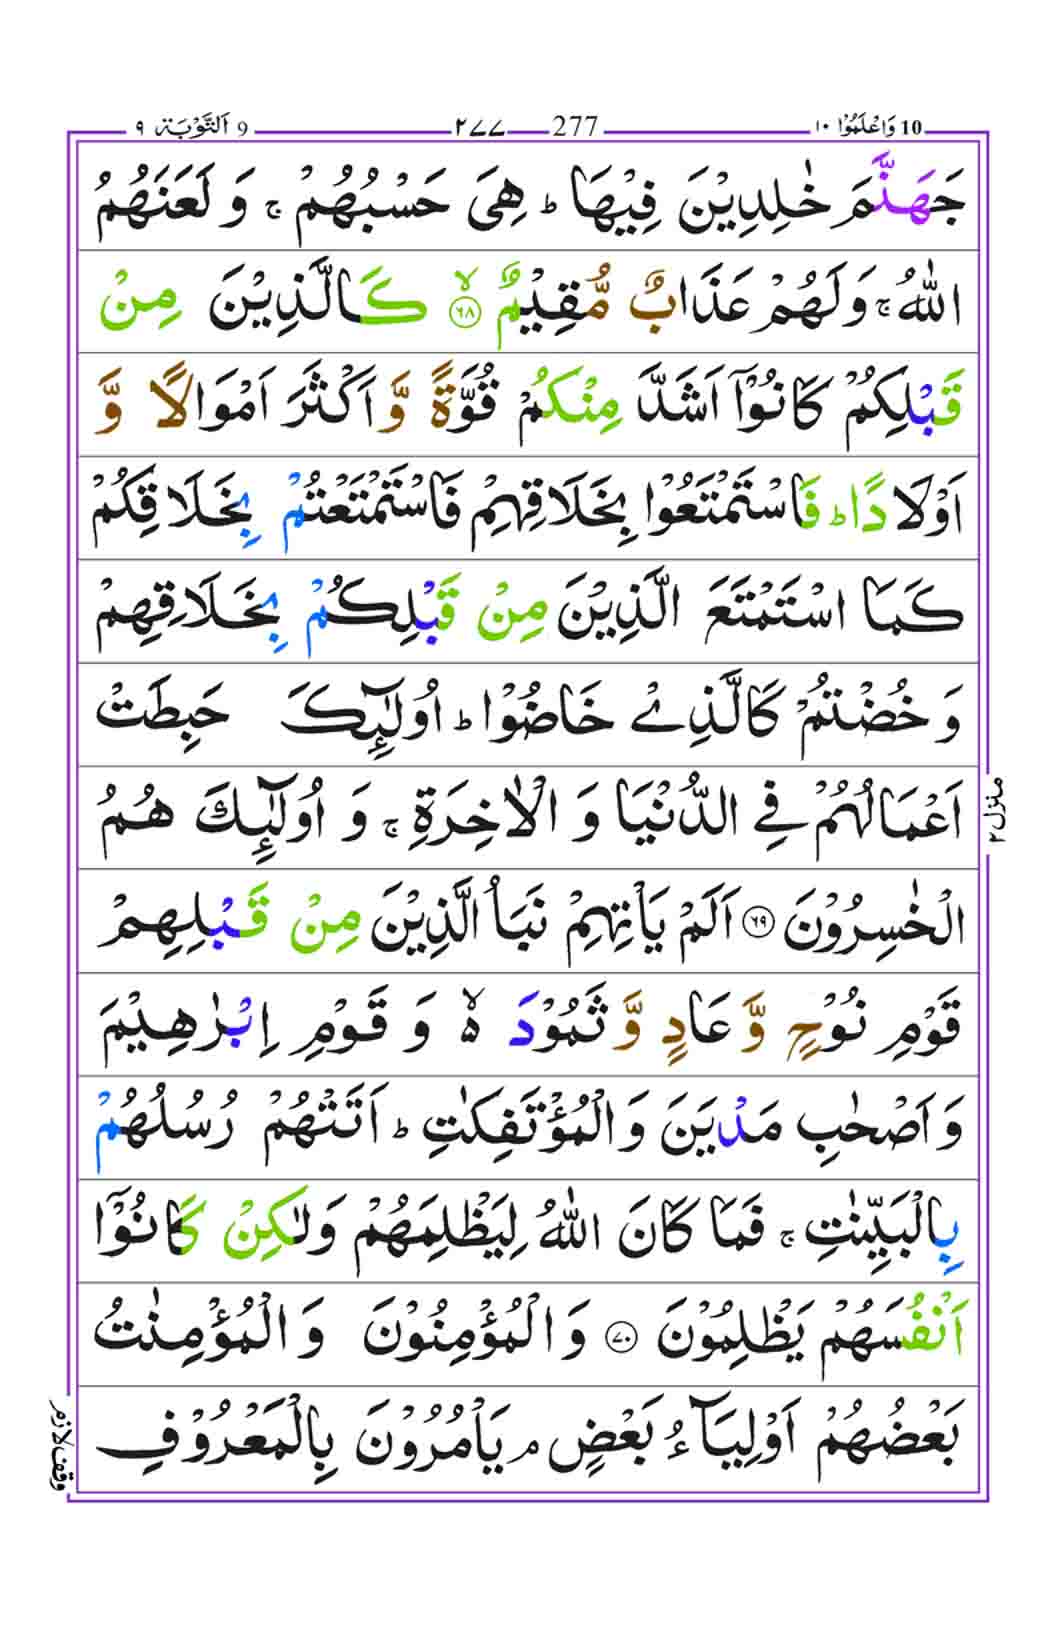 10 وَاعْلَمُوْا ١٠
277 ٢٧٧
9 اَلتَّوْبَة ٩
جَهَنَّمَ خٰلِدِيْنَ فِيْهَا ؕ هِىَ حَسْبُهُمْ ۚ وَ لَعَنَهُمُ
اللّٰهُ ۚ وَلَهُمْ عَذَابٌ مُّقِيْمٌ ۙ ﴿٦٨﴾ كَالَّذِيْنَ مِنْ
قَبْلِكُمْ كَانُوْۤا اَشَدَّ مِنْكُمْ قُوَّةً وَّ اَكْثَرَ اَمْوَالًا وَّ
اَوْلَادًا ؕ فَاسْتَمْتَعُوْا بِخَلَاقِهِمْ فَاسْتَمْتَعْتُمْ بِخَلَاقِكُمْ
كَمَا اسْتَمْتَعَ الَّذِيْنَ مِنْ قَبْلِكُمْ بِخَلَاقِهِمْ
وَ خُضْتُمْ كَالَّذِىْ خَاضُوْا ؕ اُولٰٓئِكَ حَبِطَتْ
اَعْمَالُهُمْ فِى الدُّنْيَا وَ الْاٰخِرَةِ ۚ وَ اُولٰٓئِكَ هُمُ
الْخٰسِرُوْنَ ﴿٦٩﴾ اَلَمْ يَاْتِهِمْ نَبَاُ الَّذِيْنَ مِنْ قَبْلِهِمْ
قَوْمِ نُوْحٍ وَّ عَادٍ وَّ ثَمُوْدَ ۙ۬ وَ قَوْمِ اِبْرٰهِيْمَ
وَاَصْحٰبِ مَدْيَنَ وَالْمُؤْتَفِكٰتِ ؕ اَتَتْهُمْ رُسُلُهُمْ
بِالْبَيِّنٰتِ ۚ فَمَا كَانَ اللّٰهُ لِيَظْلِمَهُمْ وَلٰكِنْ كَانُوْۤا
اَنْفُسَهُمْ يَظْلِمُوْنَ ﴿٧٠﴾ وَالْمُؤْمِنُوْنَ وَالْمُؤْمِنٰتُ
بَعْضُهُمْ اَوْلِيَآءُ بَعْضٍ ۘ يَاْمُرُوْنَ بِالْمَعْرُوْفِ
منزل ٢
وقف لازم